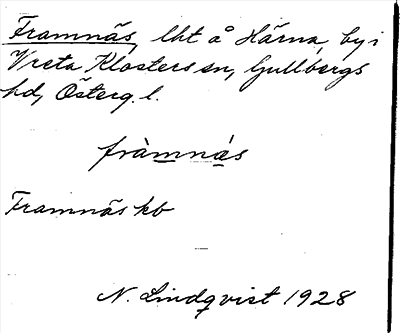 Framnäs, lht å Härna by i
Vreta Klosters sn, Gullbergs
hd, Österg. l.
fràmnä́s
Framnäs kb
N. Lindqvist 1928